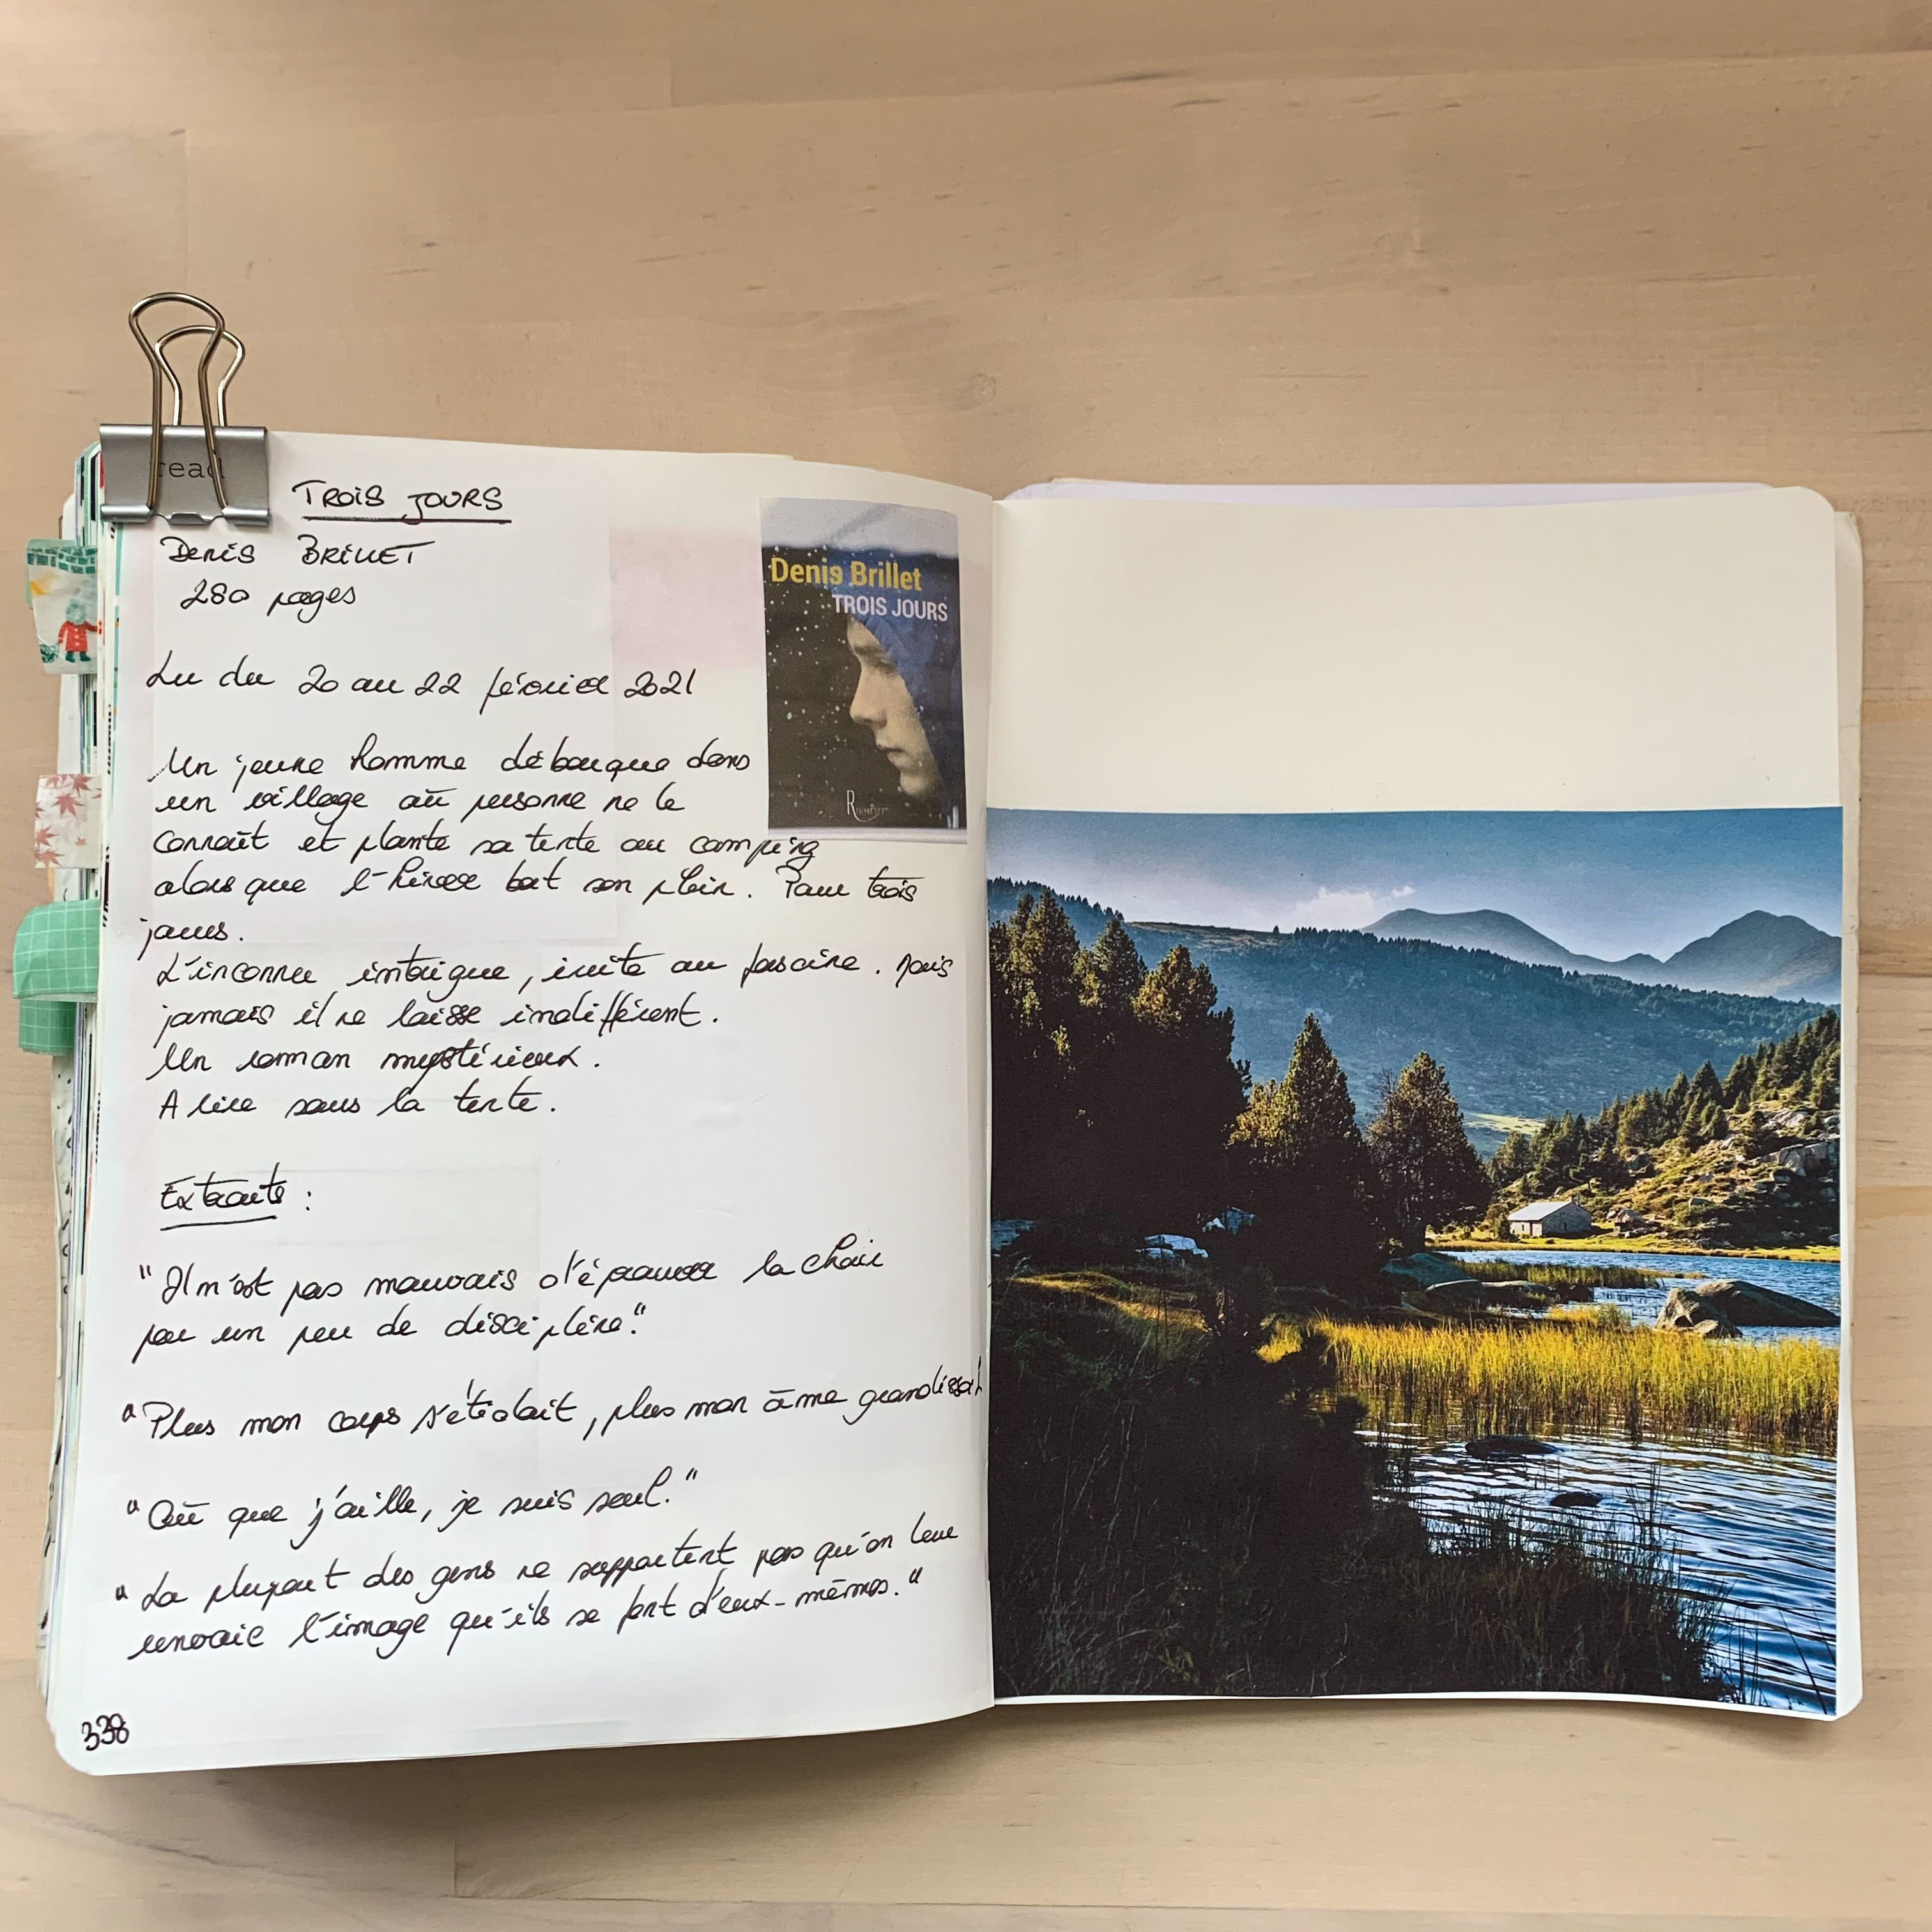 read
TROIS JOURS
DENIS BRILLET
280 pages
Lu du 20 au 22 février 2021
Denis Brillet
TROIS JOURS
Un jeune homme débarque dans
un village où personne ne le
connaît et plante sa tente au camping
alors que l'hiver bat son plein. Pour trois
jours.
L'inconnu intrigue, irrite ou fascine. Mais
jamais il ne laisse indifférent.
Un roman mystérieux.
A lire sous la tente.
Extraits :
"Il n'est pas mauvais d'éprouver la chair
par un peu de discipline."
"Plus mon corps s'étiolait, plus mon âme grandissait
"Où que j'aille, je suis seul."
"La plupart des gens ne supportent pas qu'on leur
renvoie l'image qu'ils se font d'eux-mêmes."
338